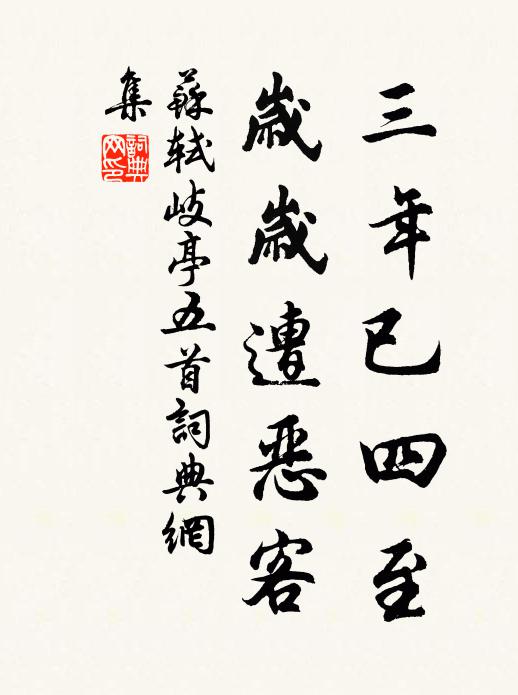 三年已四至
歲歲遭惡客
蘇軾岐亭五首詞典網
集
詞典
网印